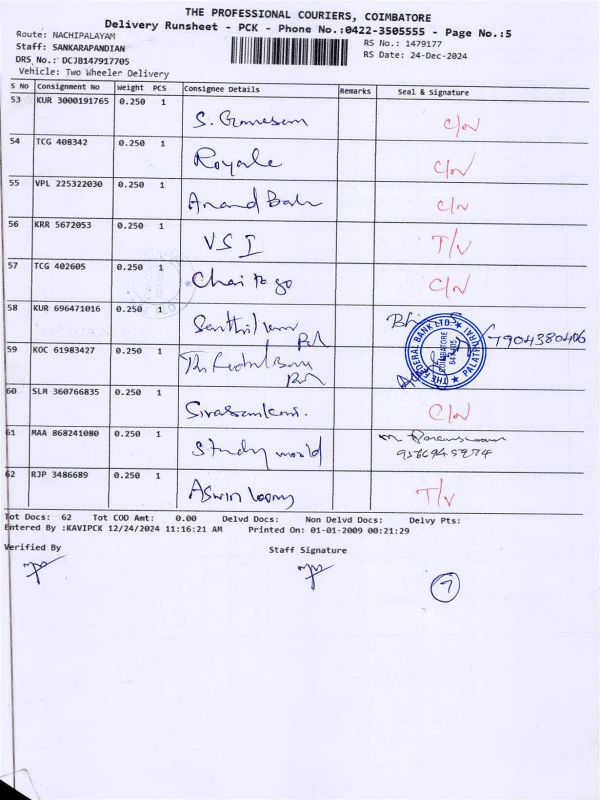 THE PROFESSIONAL COURIERS, COIMBATORE
Delivery Runsheet - PCK - Phone No.:0422-3505555 - Page No.:5
Route: NACHIPALAYAM
RS No.: 1479177
Staff: SANKARAPANDIAN
RS Date: 24-Dec-2024
DRS No.: DCJB147917705
Vehicle: Two Wheeler Delivery
S No Consignment No Weight PCS Consignee Details Remarks Seal & Signature
53 KUR 3000191765 0.250 1
S. Ganesan C/N
54 TCG 408342 0.250 1
Royale C/N
55 VPL 225322030 0.250 1
Anand C/N
56 KRR 5672053 0.250 1
VS I T/V
57 TCG 402605 0.250 1
Chai to go C/N
58 KUR 696471016 0.250 1
7904380406
THE FEDERAL BANK LTD.
COIMBATORE
59 KOC 61983427 0.250 1
60 SLM 360766835 0.250 1
C/N
61 MAA 868241080 0.250 1
Study world
62 RJP 3486689 0.250 1
Aswin T/V
Tot Docs: 62 Tot COD Amt: 0.00 Delvd Docs: Non Delvd Docs: Delvy Pts:
Entered By :KAVIPCK 12/24/2024 11:16:21 AM Printed On: 01-01-2009 00:21:29
Verified By Staff Signature
7